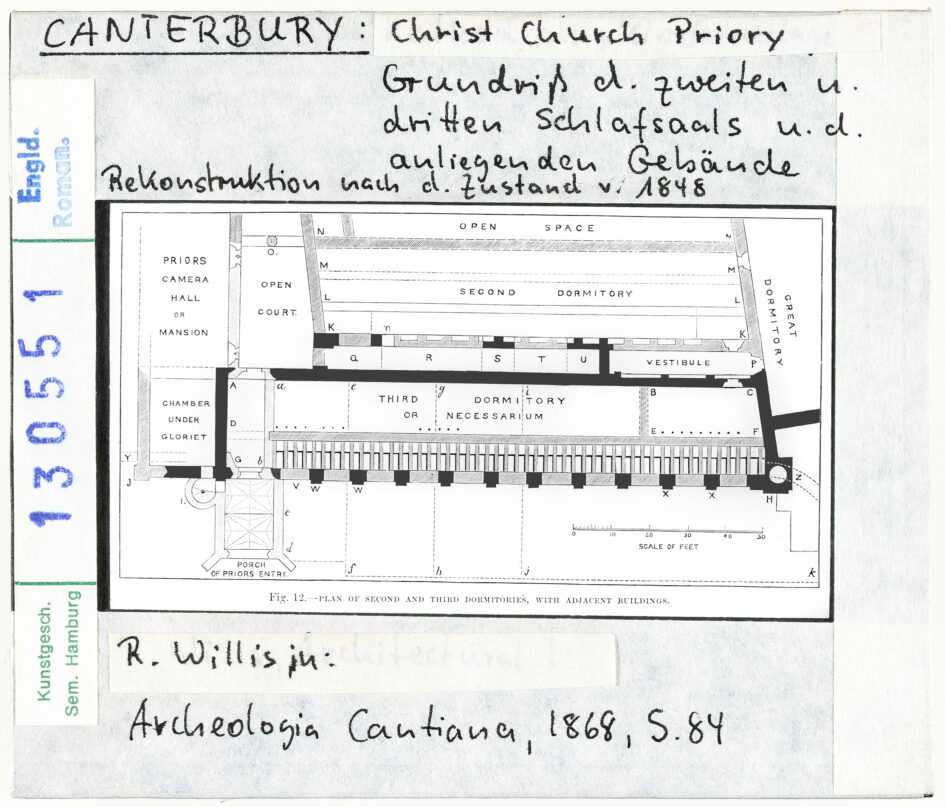 CANTERBURY: Christ Church Priory
Grundriß d. zweiten u.
dritten Schlafsaals u. d.
anliegenden Gebäude
Rekonstruktion nach d. Zustand v. 1848
Engld.
Roman.
130551 1
Kunstgesch.
Sem. Hamburg
OPEN SPACE
N
N
O.
PRIORS
CAMERA
HALL
OR
MANSION
OPEN
COURT.
M
M
SECOND DORMITORY
L
L
GREAT
DORMITORY
K
n
K
Q R S T U
VESTIBULE
P
A
a
e
g
i
B
C
CHAMBER
UNDER
GLORIET
D
THIRD DORMITORY
OR NECESSARIUM
E
F
Y
G
b
J
I.
V
W
W
X
X
H
Z
c
d
10 20 30 40 50
SCALE OF FEET
PORCH
OF PRIORS ENTRY.
f
h
j
k
Fig. 12.—PLAN OF SECOND AND THIRD DORMITORIES, WITH ADJACENT BUILDINGS.
R. Willis in:
Archeologia Cantiana, 1868, S. 84